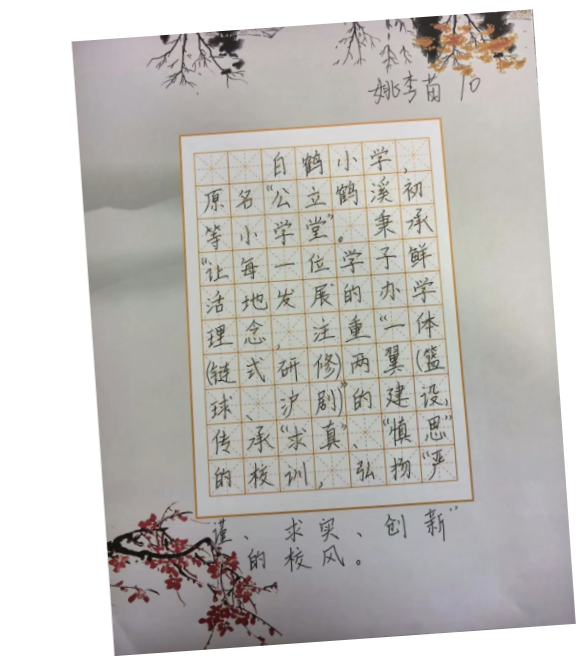 姚李苗 10
白鹤小学,
原名“公立鹤溪初
等小学堂”。秉承
“让每一位学子鲜
活地发展的办学
理念,注重“一体
(链式研修)两翼(篮
球、沪剧)”的建设,
传承“求真”、“慎思”
的校训,弘扬“严
谨、求实、创新”
的校风。